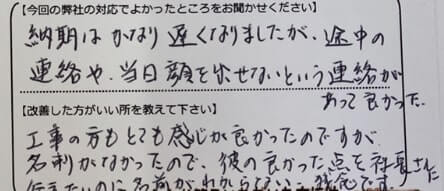 【今回の弊社の対応でよかったところをお聞かせください】
納期は かなり 遅くなりましたが、途中の
連絡や、当日顔を出せないという連絡が
あって良かった。
【改善した方がいい所を教えて下さい】
工事の方もとても感じが良かったのですが
名刺がなかったので、彼の良かった点を社長さんに
伝えたいのに名前がわからない、残念です。